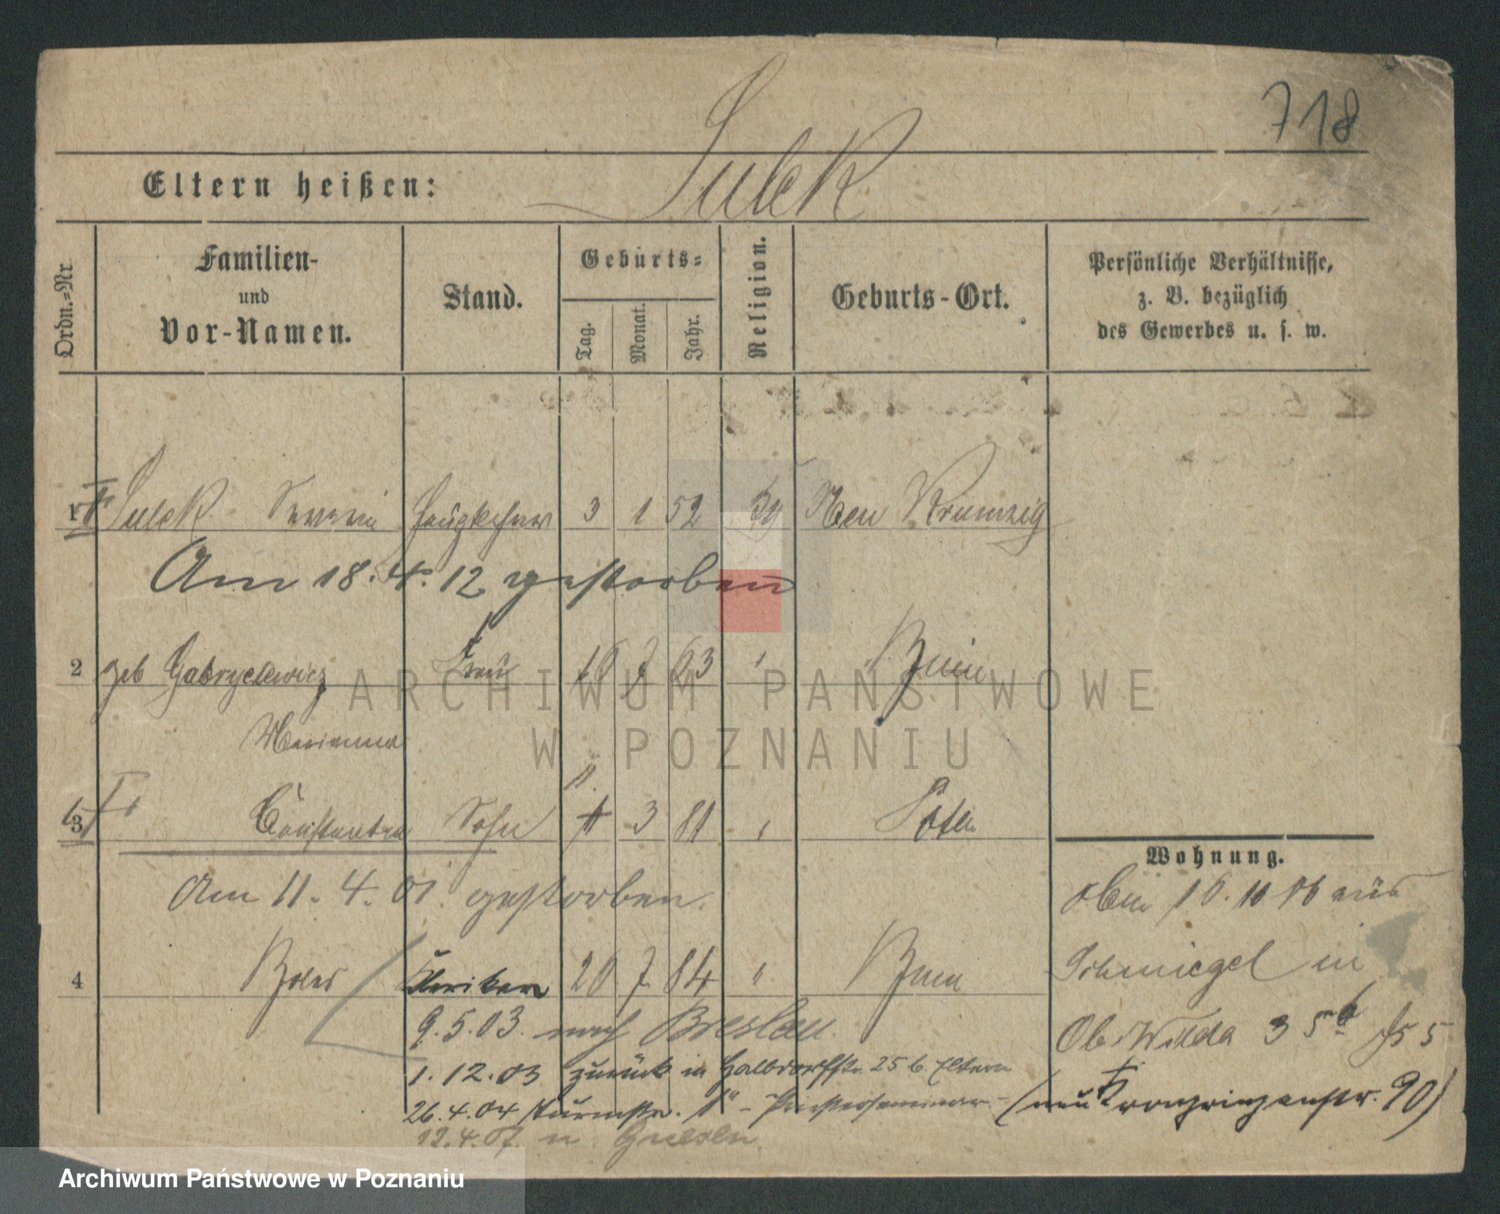 718
Sulek
Eltern heißen:
Ordn.-Nr.
Familien-
und
Vor-Namen.
Stand.
Geburts-
Tag.
Monat.
Jahr.
Religion.
Geburts-Ort.
Persönliche Verhältnisse,
z. B. bezüglich
des Gewerbes u. s. w.
1 Sulek Severin 3 1 52 Neu Kramzig
Am 18. 4. 12 gestorben
2 geb Gabryelewicz Frau 16 7 63 " Bnin
Marianna
11.
3 Constantin Sohn 3 81 "
Wohnung.
Am 11. 4. 01. gestorben.
16. 10 06 aus
4 Boles Kleriker 20 7. 84 " Bnin
Schmiegel in
9. 5. 03. nach Breslau.
Ob. Wilda 3
1. 12. 03 zurück in Halbdorffstr. 25 b. Eltern
26. 4. 04 - Priesterseminar. - (neu Kronprinzenstr. 90)
12. 4. 07. n. Gnesen
ARCHIWUM PAŃSTWOWE
W POZNANIU
Archiwum Państwowe w Poznaniu